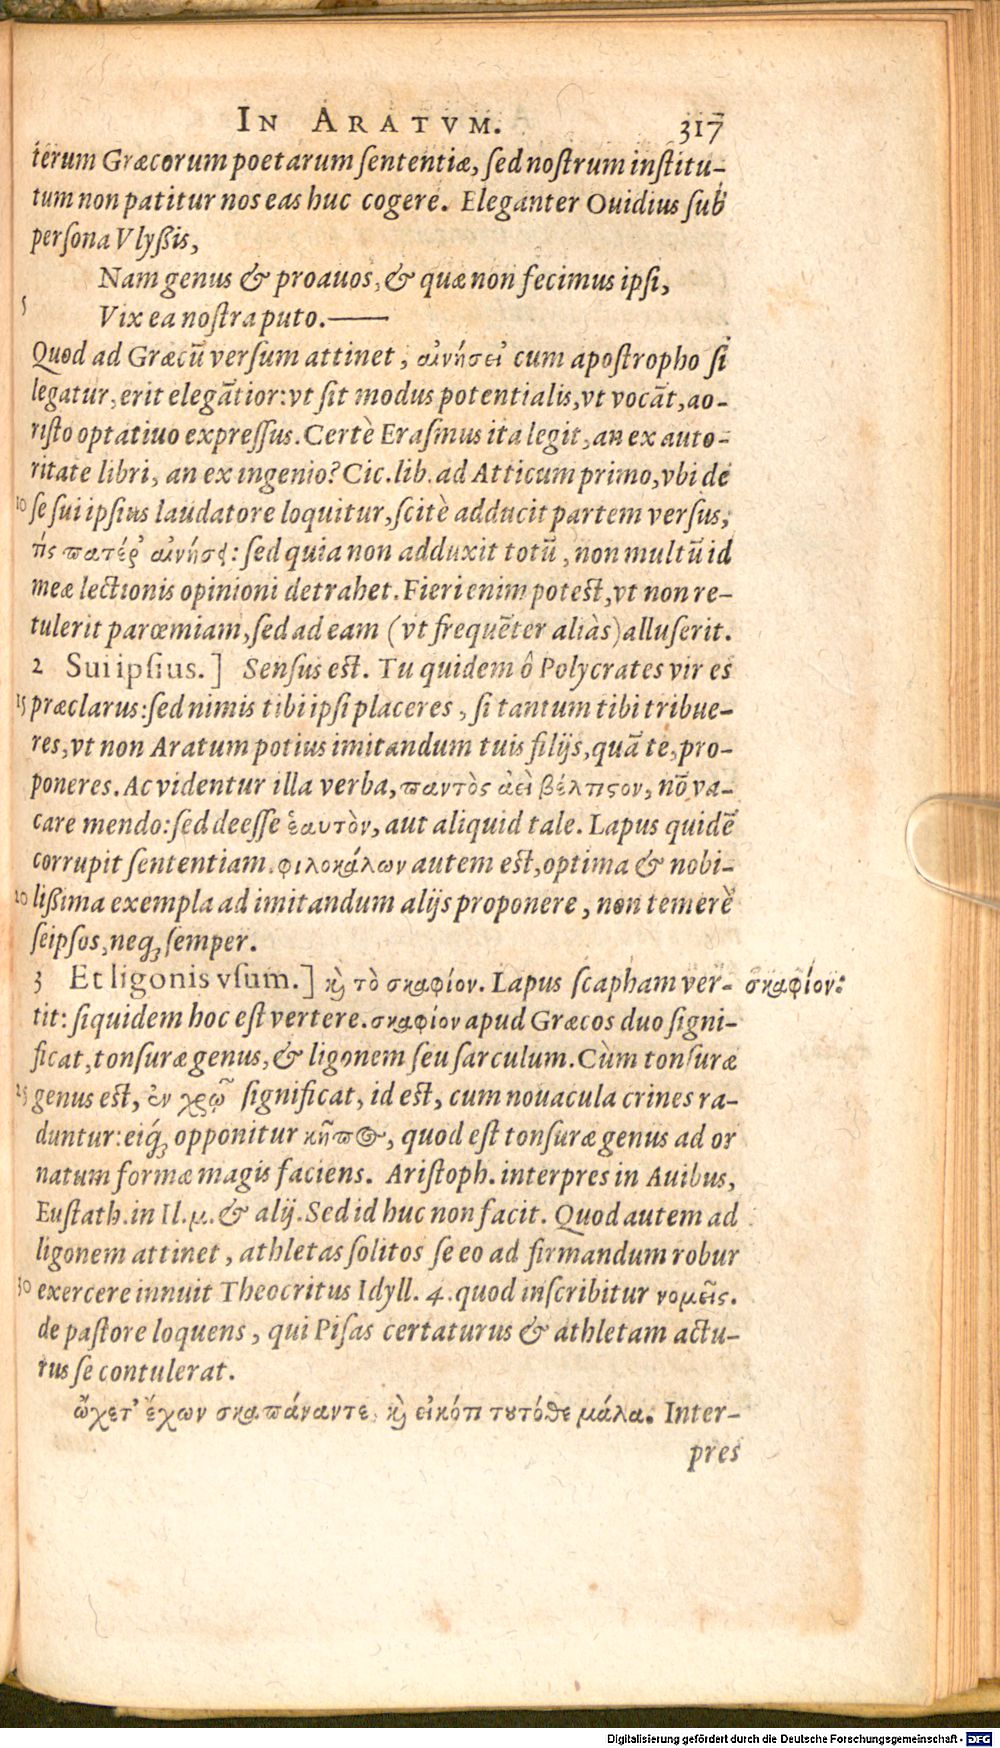 IN ARATVM. 317
terum Græcorum poetarum sententiæ, sed nostrum institu-
tum non patitur nos eas huc cogere. Eleganter Ouidius sub
persona Vlyßis,
Nam genus & proauos, & quæ non fecimus ipsi,
5
Vix ea nostra puto.——
Quod ad Græcũ versum attinet, αἰνήσει' cum apostropho si
legatur, erit elegãtior: vt sit modus potentialis, vt vocãt, ao-
risto optatiuo expressus. Certè Erasmus ita legit, an ex auto-
ritate libri, an ex ingenio? Cic. lib. ad Atticum primo, vbi de
10 se sui ipsius laudatore loquitur, scitè adducit partem versus,
τίς πατέρ' αἰνήσει: sed quia non adduxit totũ, non multũ id
meæ lectionis opinioni detrahet. Fieri enim potest, vt non re-
tulerit parœmiam, sed ad eam (vt frequẽter aliàs) alluserit.
2 Sui ipsius.] Sensus est. Tu quidem ô Polycrates vir es
15 præclarus: sed nimis tibi ipsi placeres, si tantum tibi tribue-
res, vt non Aratum potius imitandum tuis filijs, quã te, pro-
poneres. Ac videntur illa verba, παντὸς ἀεὶ βέλτιστον, nõ va-
care mendo: sed deesse ἑαυτὸν, aut aliquid tale. Lapus quidẽ
corrupit sententiam. φιλοκάλων autem est, optima & nobi-
20 lißima exempla ad imitandum alijs proponere, non temerè
seipsos, neq; semper.
3 Et ligonis vsum.] καὶ τὸ σκαφίον. Lapus scapham ver- σκαφίον:
tit: siquidem hoc est vertere. σκαφίον apud Græcos duo signi-
ficat, tonsuræ genus, & ligonem seu sarculum. Cùm tonsuræ
25 genus est, ἐν χρῷ significat, id est, cum nouacula crines ra-
duntur: eiq; opponitur κῆπος, quod est tonsuræ genus ad or
natum formæ magis faciens. Aristoph. interpres in Auibus,
Eustath. in Il. μ. & alij. Sed id huc non facit. Quod autem ad
ligonem attinet, athletas solitos se eo ad firmandum robur
30 exercere innuit Theocritus Idyll. 4. quod inscribitur νομεῖς.
de pastore loquens, qui Pisas certaturus & athletam actu-
rus se contulerat.
ᾤχετ' ἔχων σκαπάναν τε, καὶ εἴκοτι τουτόθε μάλα. Inter-
pres
Digitalisierung gefördert durch die Deutsche Forschungsgemeinschaft - DFG